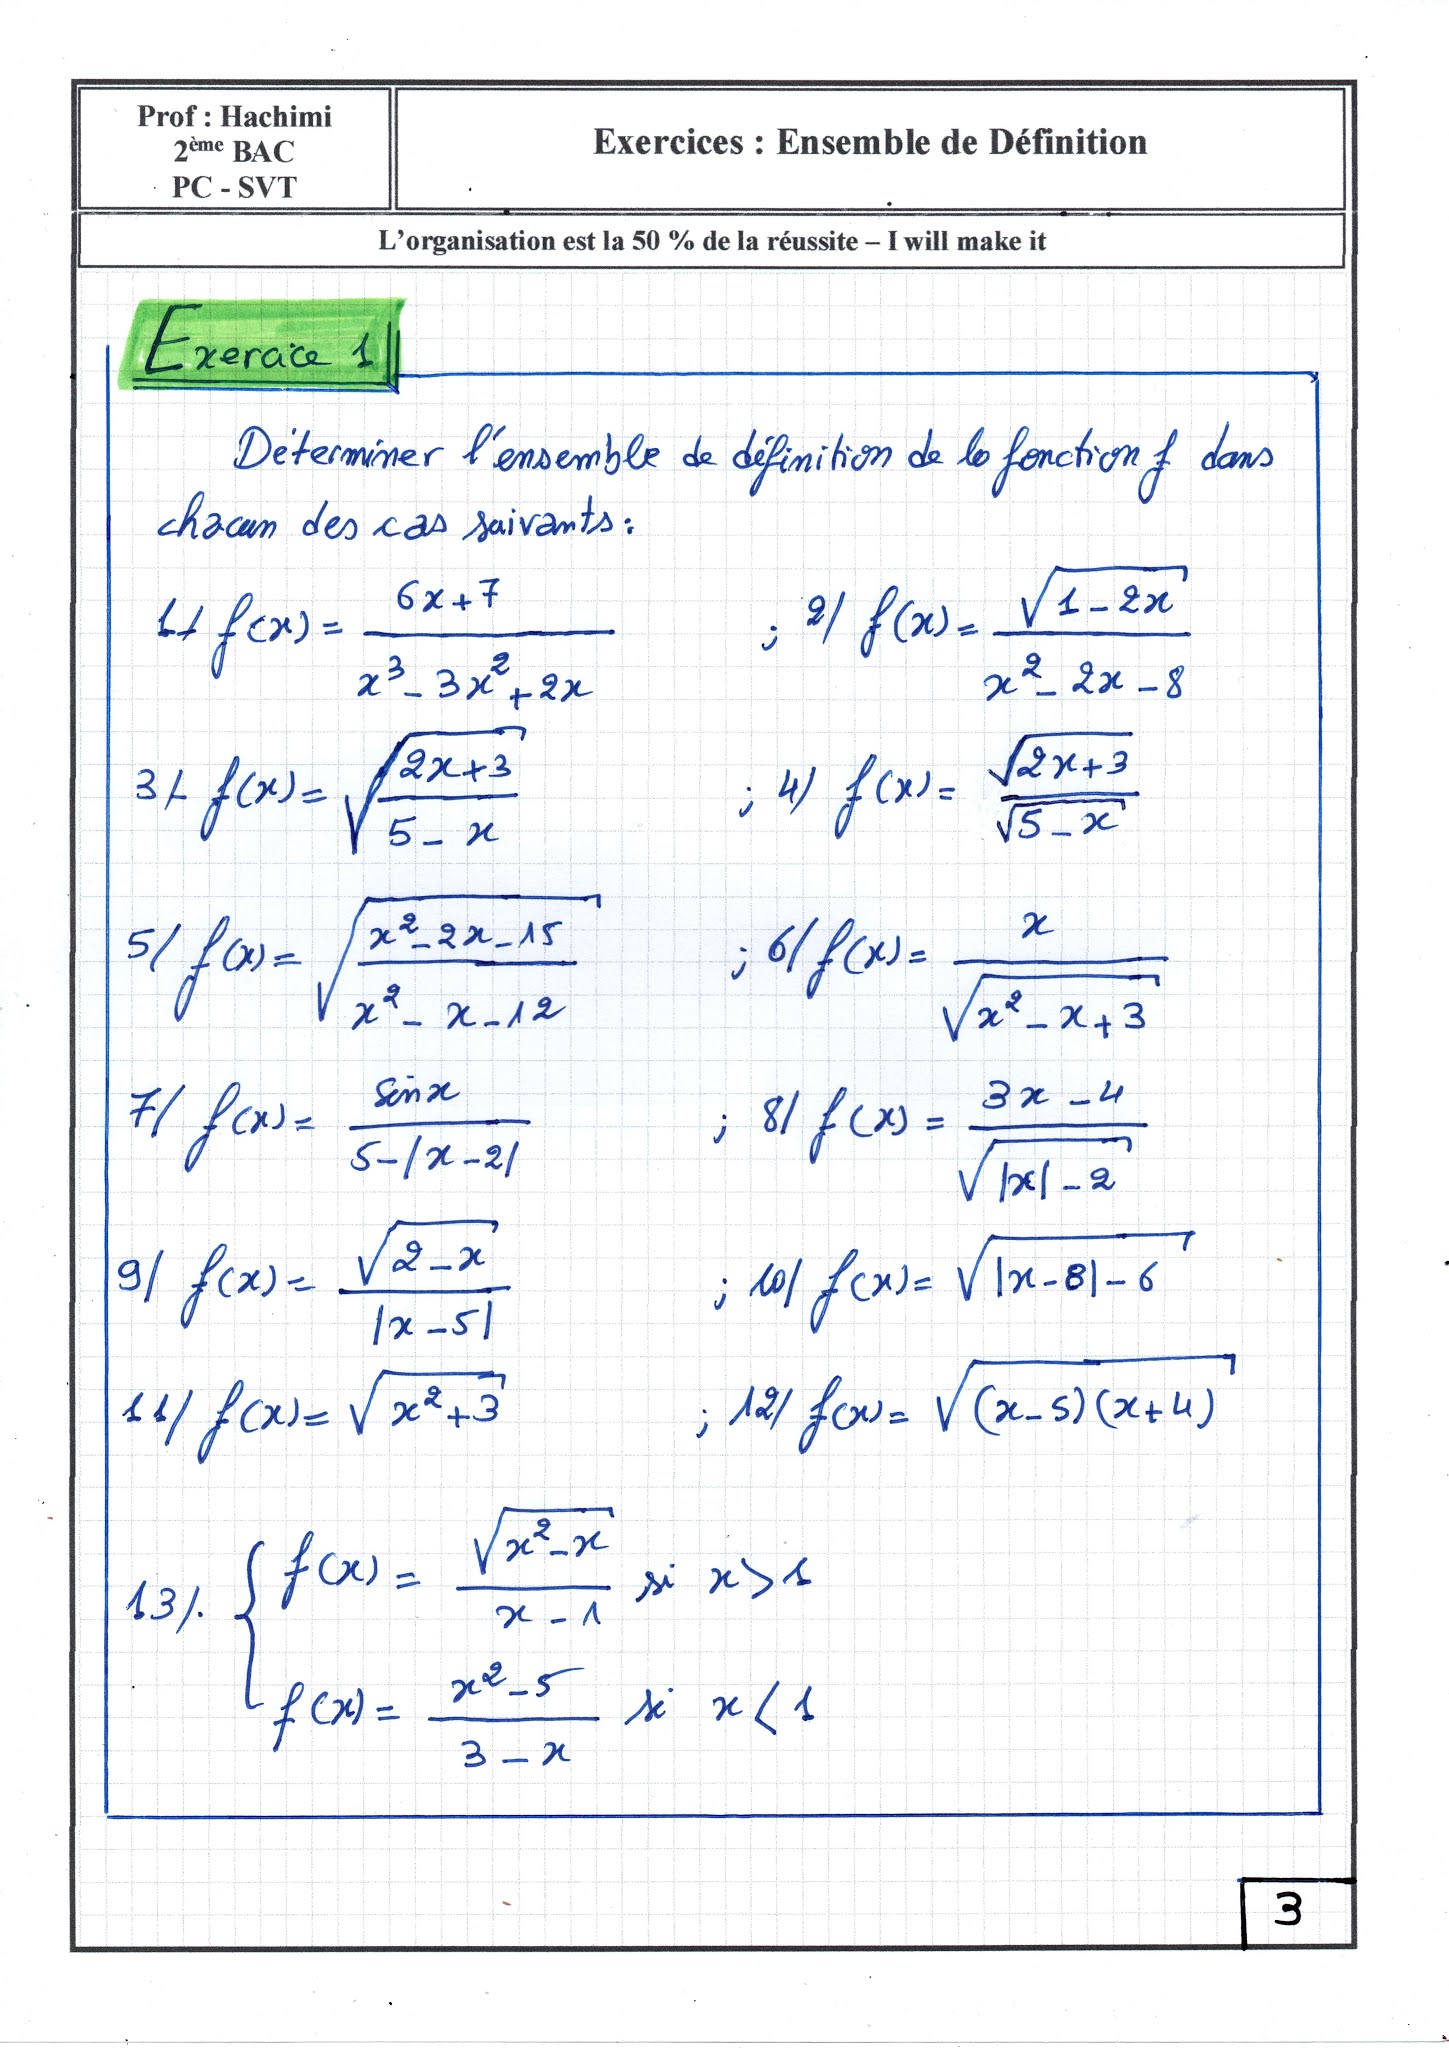 Prof : Hachimi
2ème BAC
PC - SVT
Exercices : Ensemble de Définition
L'organisation est la 50 % de la réussite – I will make it
Exercice 1
Déterminer l'ensemble de définition de la fonction f dans
chacun des cas suivants :
1/ f(x) = (6x+7)/(x³-3x²+2x) ; 2/ f(x) = √(1-2x)/(x²-2x-8)
3/ f(x) = √((2x+3)/(5-x)) ; 4) f(x) = √(2x+3)/√(5-x)
5/ f(x) = √((x²-2x-15)/(x²-x-12)) ; 6/ f(x) = x/√(x²-x+3)
7/ f(x) = sinx/(5-|x-2|) ; 8/ f(x) = (3x-4)/√(|x|-2)
9/ f(x) = √(2-x)/|x-5| ; 10/ f(x) = √(|x-8|-6)
11/ f(x) = √(x²+3) ; 12/ f(x) = √((x-5)(x+4))
13/. { f(x) = √(x²-x)/(x-1) si x > 1
f(x) = (x²-5)/(3-x) si x < 1
3